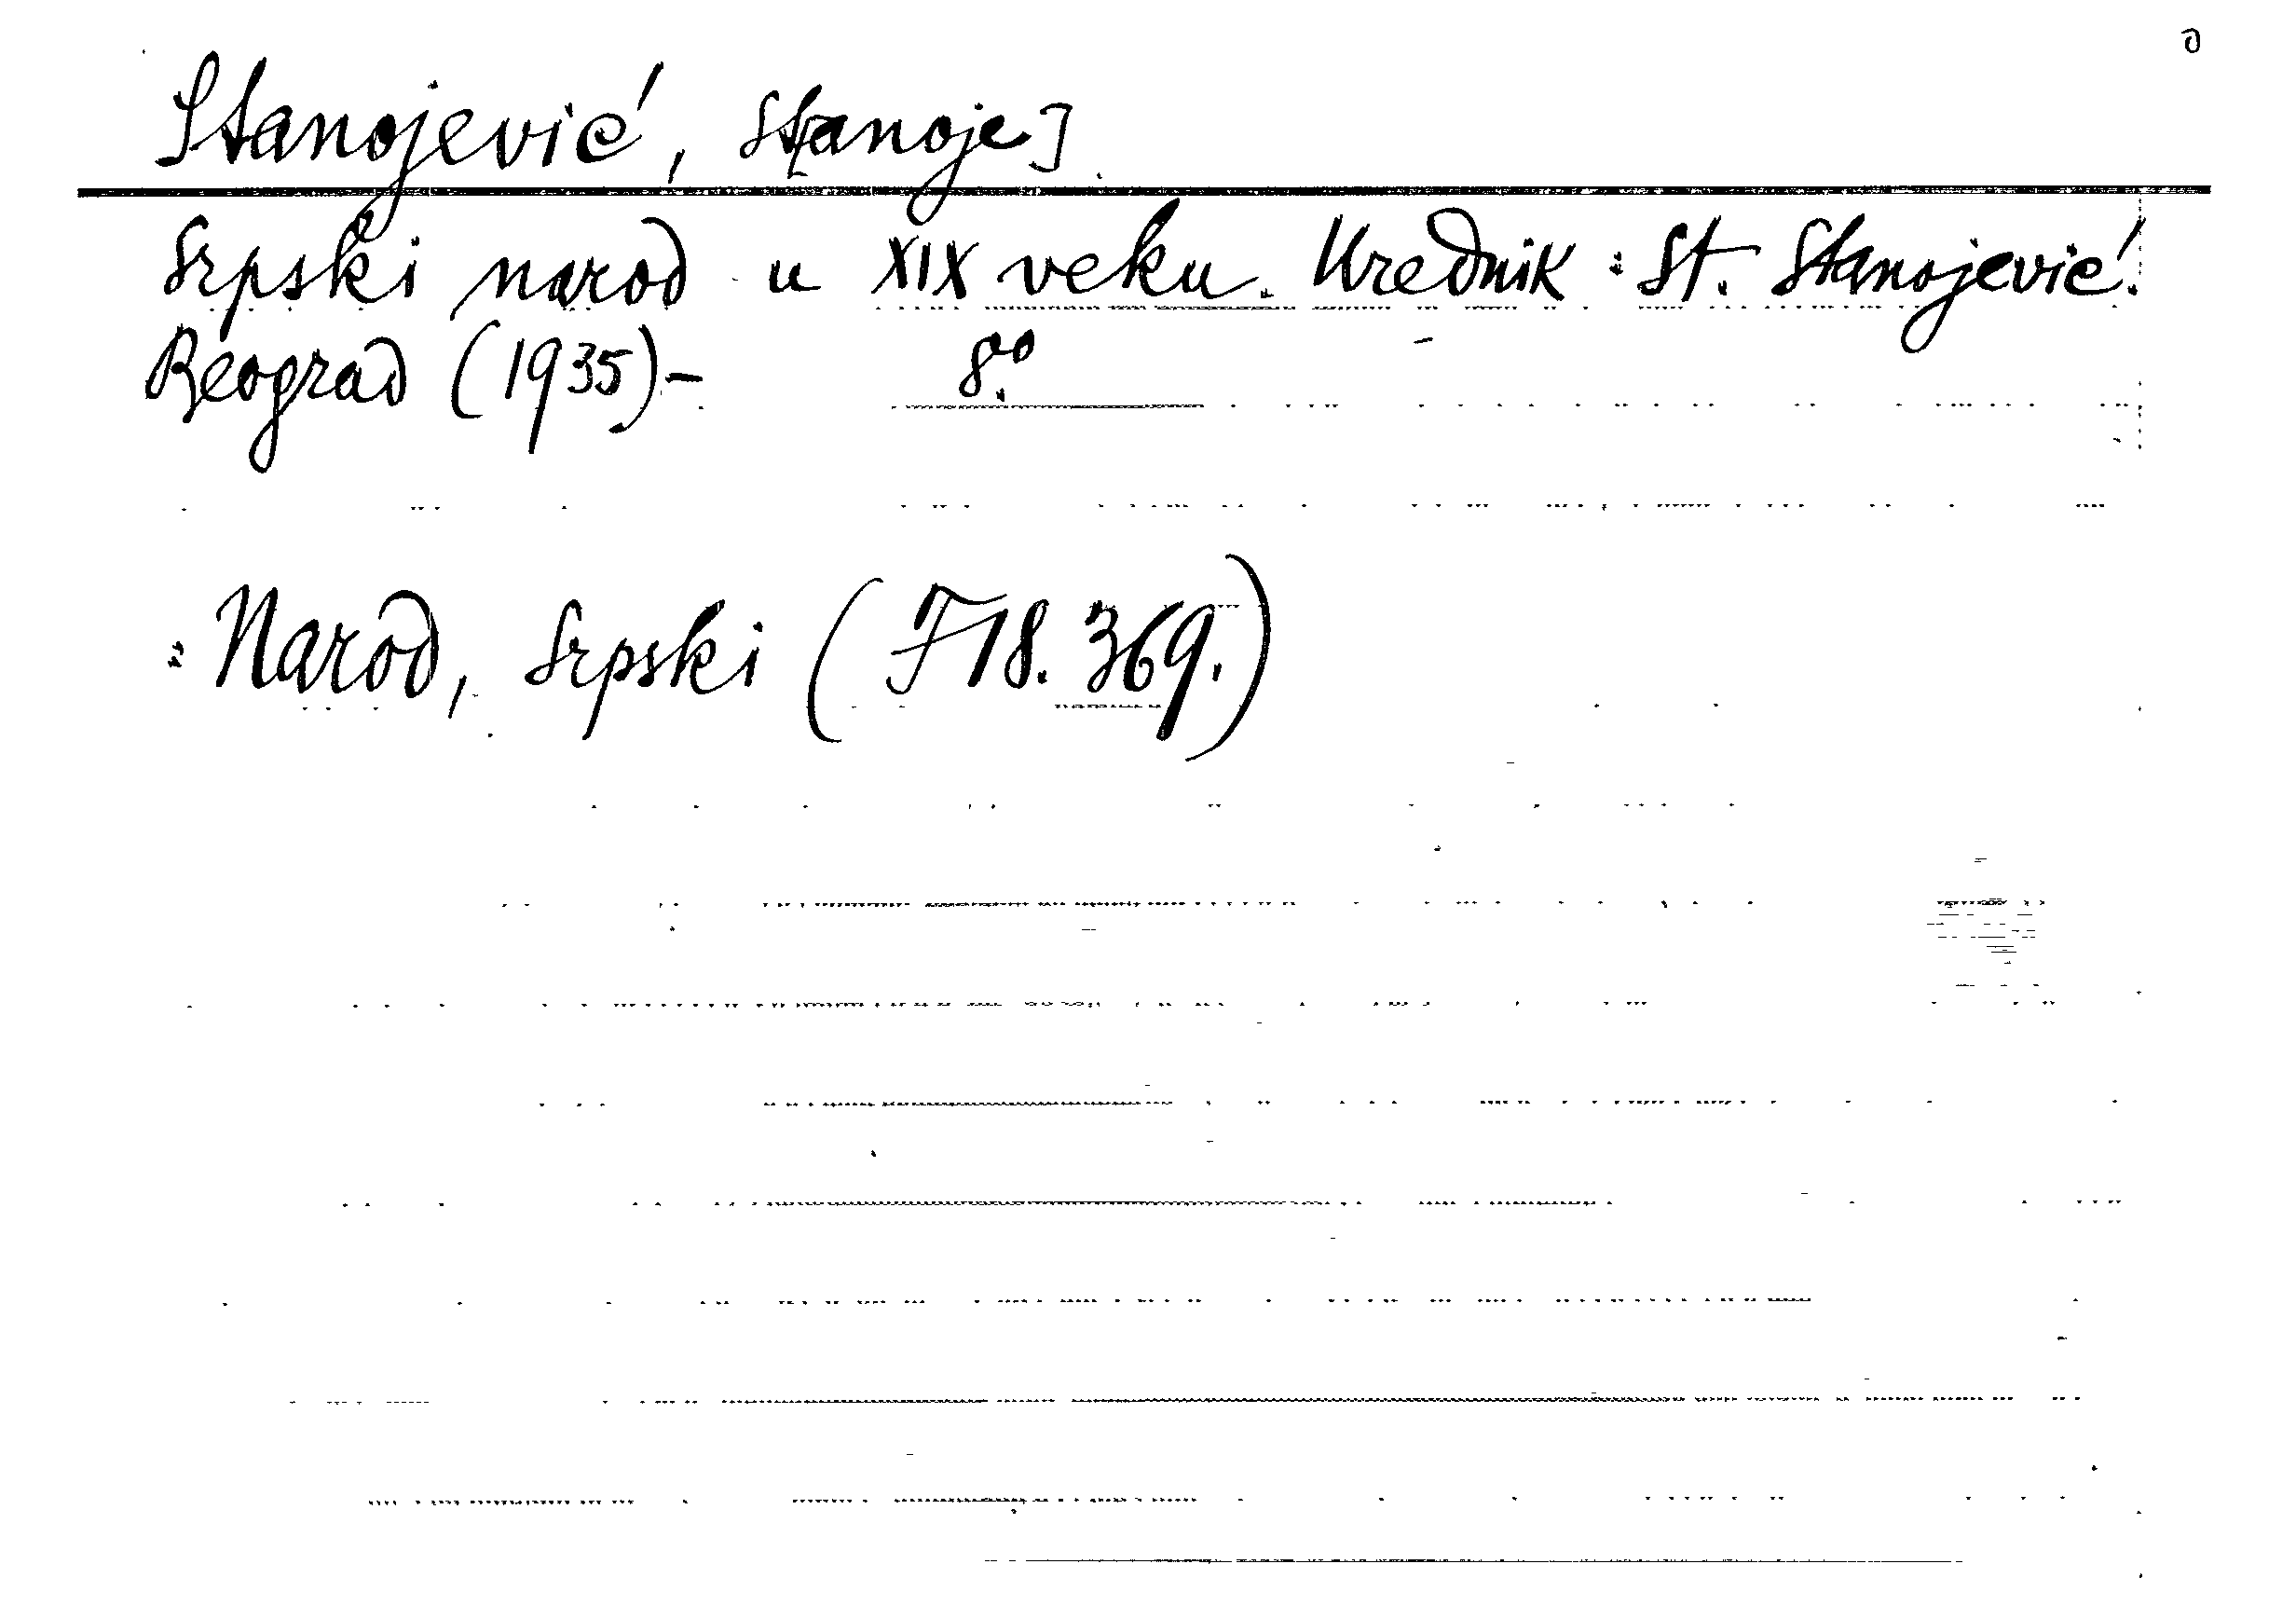 Stanojević, St[anoje]
Srpski narod u XIX veku. Urednik: St. Stanojević.
Beograd (1935)- 8.º
: Narod, Srpski (F18.369.)